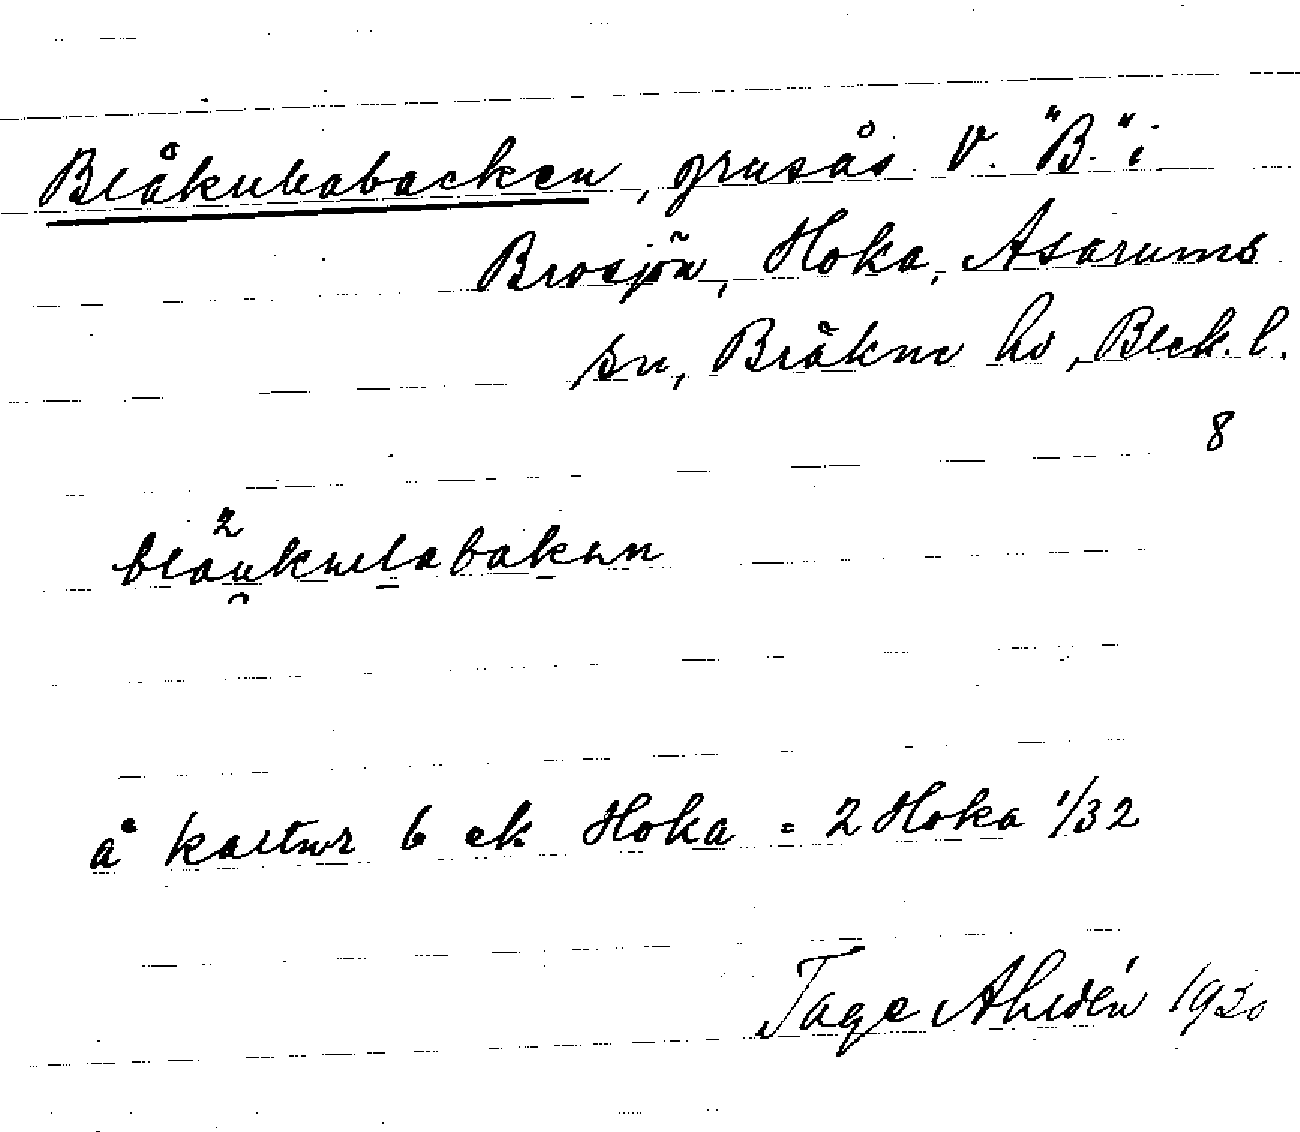 Blåkullabacken, grusås V. "B." i
Brosjön, Hoka, Asarums
sn, Bräkne hd, Blek. l.
8
2
blaukullabakun
å kartur b ek Hoka = 2 Hoka 1/32
Tage Ahldén 1930